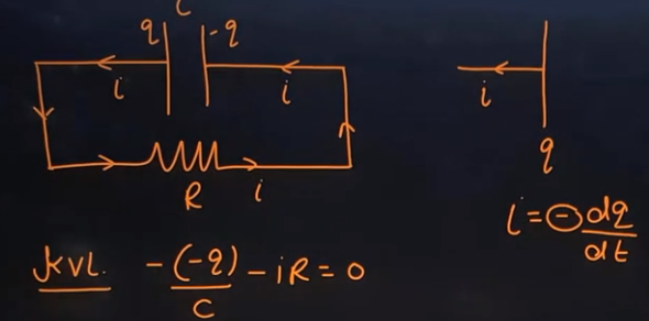 C
q -q
i i i
q
R i
i = ⊖ dq/dt
KVL. -(-q)/C - iR = 0